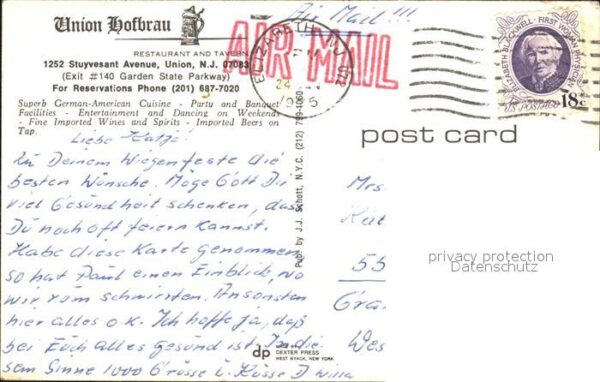 Union Hofbrau
RESTAURANT AND TAVERN
1252 Stuyvesant Avenue, Union, N.J. 07083
(Exit #140 Garden State Parkway)
For Reservations Phone (201) 687-7020
Superb German-American Cuisine - Party and Banquet
Facilities - Entertainment and Dancing on Weekends
- Fine Imported Wines and Spirits - Imported Beers on
Tap.
Air Mail!!!
AIR MAIL
ELIZABETH NJ
24
ELIZABETH BLACKWELL · FIRST WOMAN PHYSICIAN
18c
US POSTAGE
post card
Liebe Katja!
Zu Deinem Wiegenfeste die
besten Wünsche. Möge Gott Dir
viel Gesundheit schenken, dass
Du noch oft feiern kannst.
Habe diese Karte genommen
so hat Paul einen Einblick, wo
wir rum schwirrten. Ansonsten
hier alles o.k. Ich hoffe ja, daß
bei Euch alles gesund ist. In die
sem Sinne 1000 Grüsse u. Küsse D
Publ by J.J. Schott, N.Y.C. (212) 799-1060
dp
DEXTER PRESS
WEST NYACK, NEW YORK
Mrs
Kat
55
Gra
Wes
privacy protection
Datenschutz